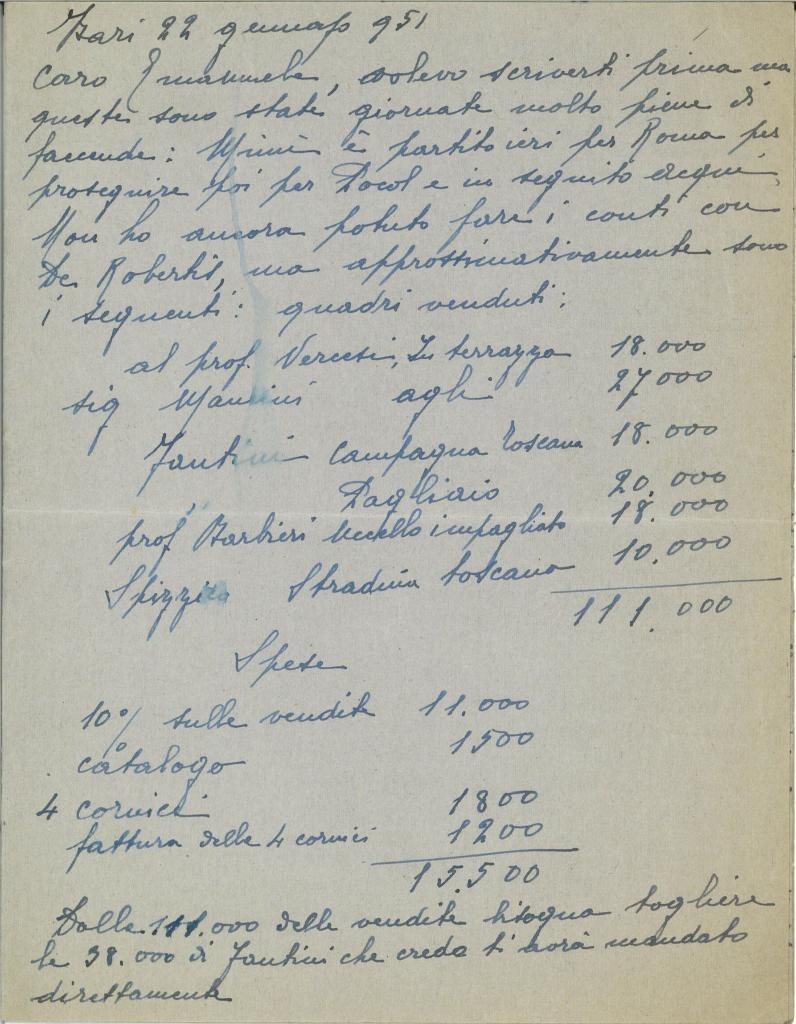 Bari 22 gennaio 951
Caro Emanuele, volevo scriverti prima ma
queste sono state giornate molto piene di
faccende: Mimì è partito ieri per Roma per
proseguire poi per Docol e in seguito Acqui
Non ho ancora potuto fare i conti con
De Robertis, ma approssimativamente sono
i seguenti: quadri venduti:
al prof. Vercesi, In terrazza 18.000
sig Mancini agli 27000
Fantini Campagna toscana 18.000
Pagliaio 20.000
prof Barbieri Uccello impagliato 18.000
Spizzico Stradina toscana 10.000
111.000
Spese
10% sulle vendite 11.000
catalogo 1500
4 cornici 1800
fattura delle 4 cornici 1200
15.500
Dalle 111.000 delle vendite bisogna togliere
le 38.000 di Fantini che credo ti avrà mandato
direttamente